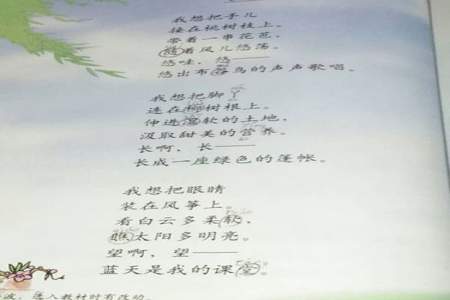 我想把手儿
接在桃树枝上。
带着一串花苞,
随着风儿悠荡。
悠哇,悠——
悠出布谷鸟的声声歌唱。
我想把脚丫
连在柳树根上。
伸进湿软的土地,
汲取甜美的营养。
长啊,长——
长成一座绿色的篷帐。
我想把眼睛
装在风筝上。
看白云多柔软,
瞧太阳多明亮。
望啊,望——
蓝天是我的课堂。
选入教材时有改动。